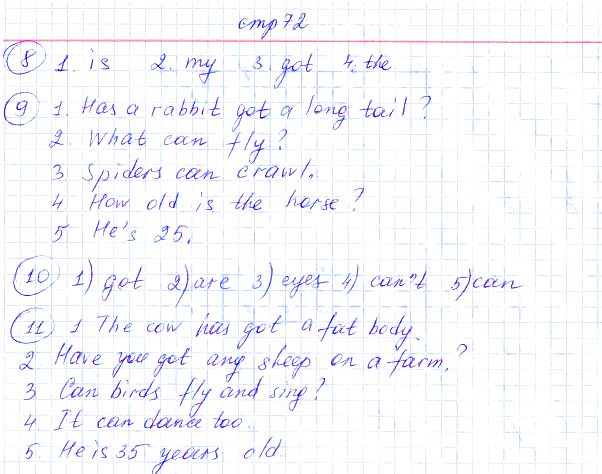 стр 72
8 1. is 2. my 3. got 4. the
9 1. Has a rabbit got a long tail?
2. What can fly?
3. Spiders can crawl.
4 How old is the horse?
5 He's 25.
10 1) got 2) are 3) eyes 4) can't 5) can
11 1 The cow has got a fat body.
2 Have you got any sheep on a farm.?
3 Can birds fly and sing?
4 It can dance too.
5. He is 35 years old.